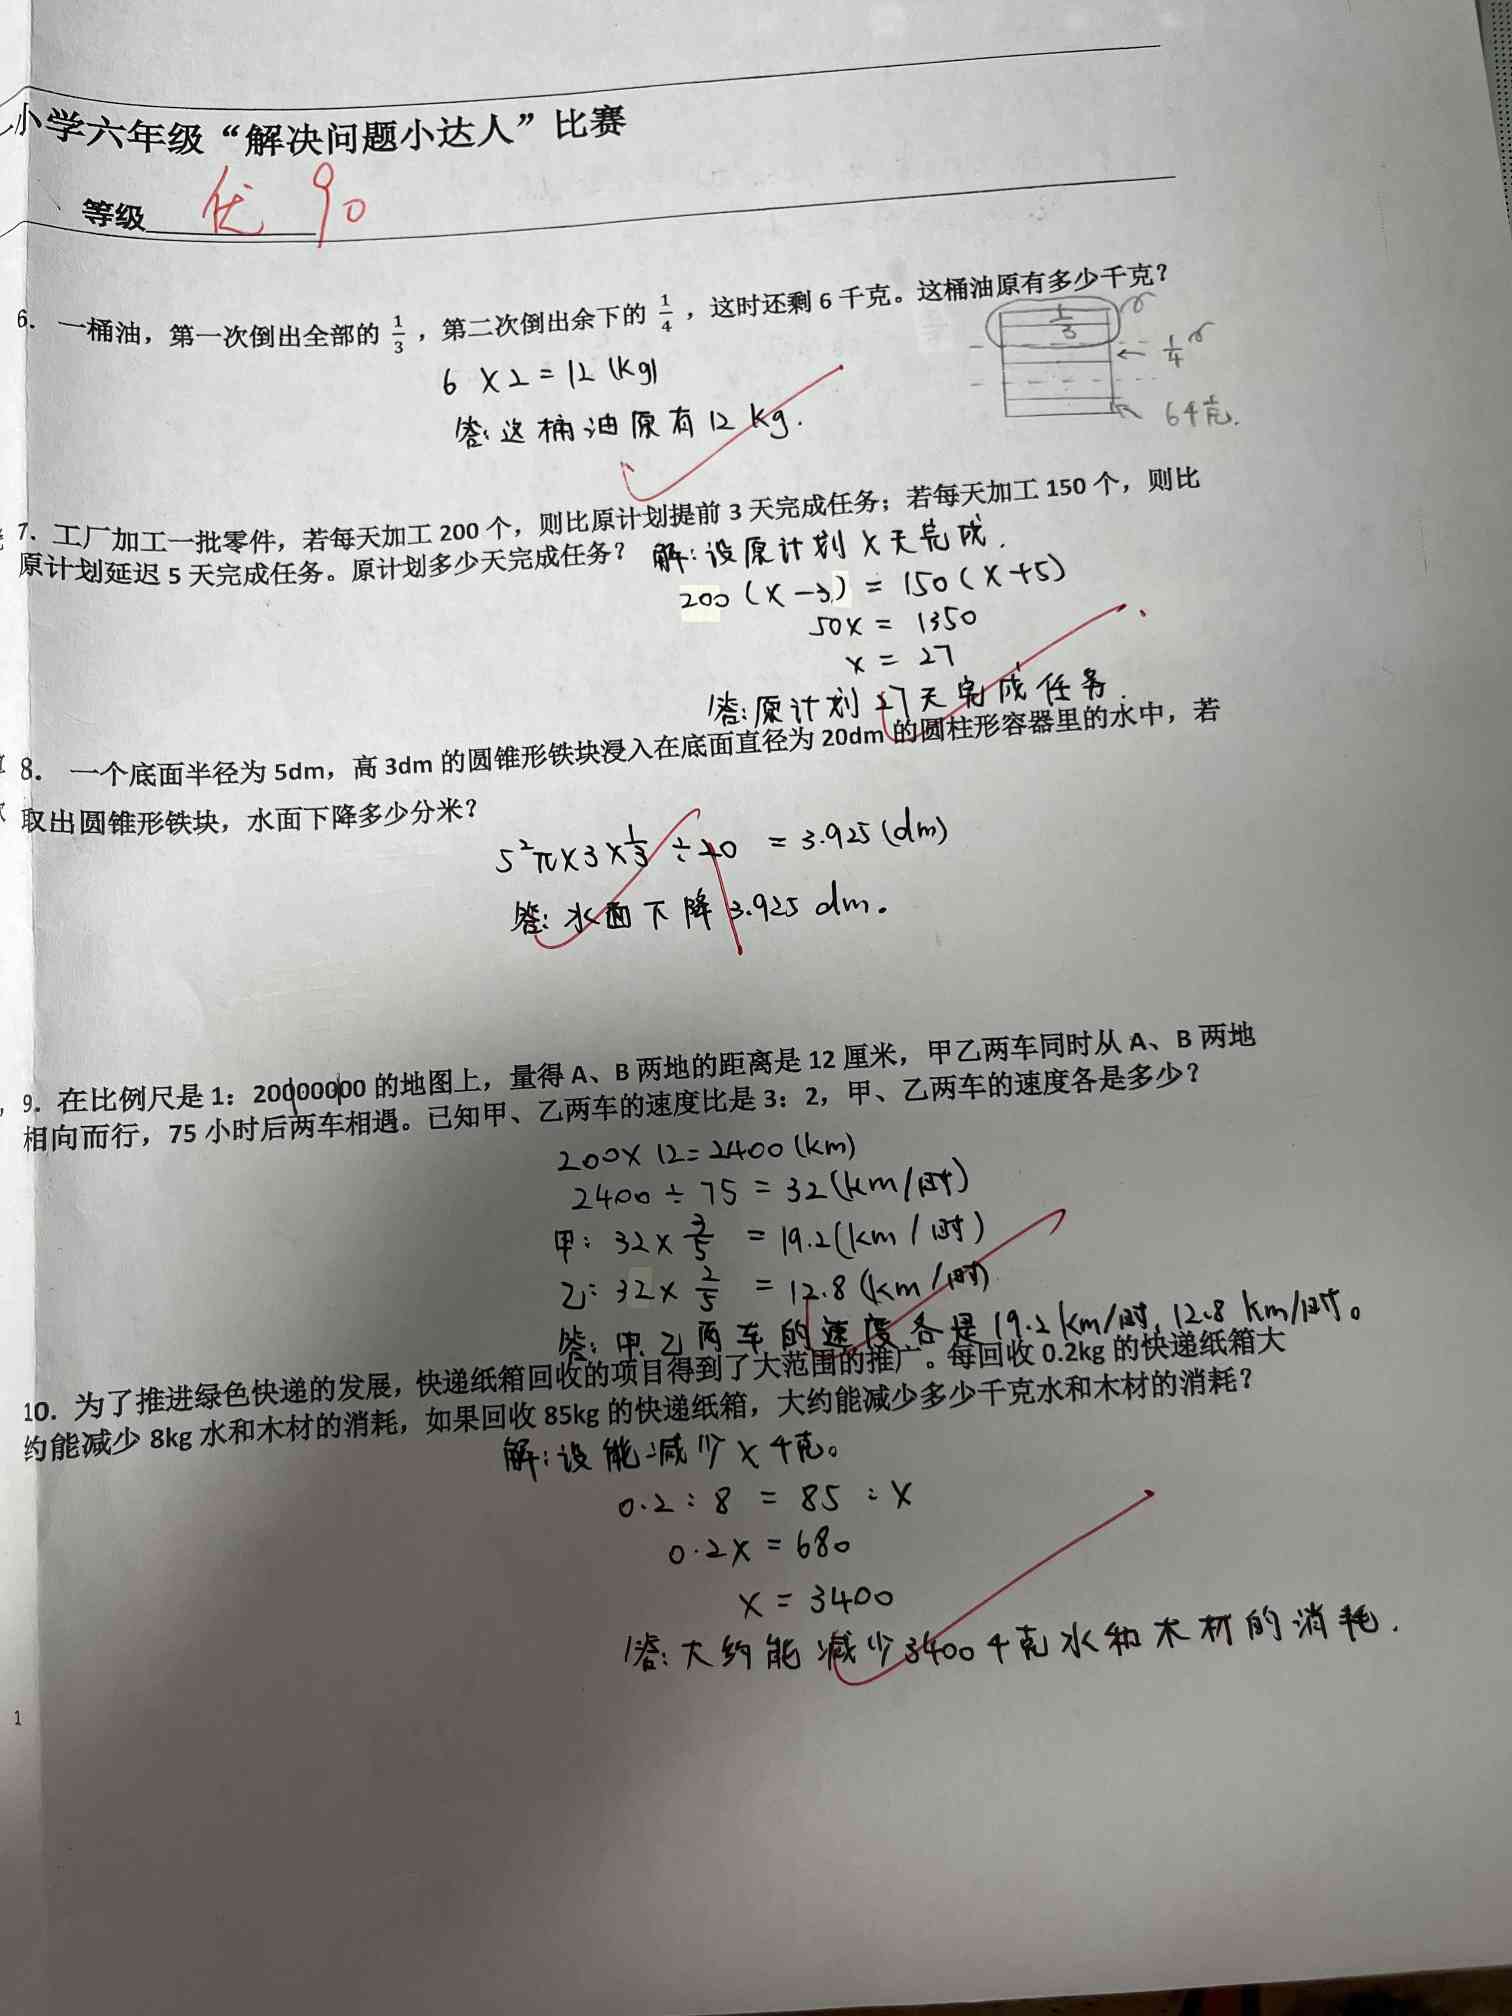 小学六年级“解决问题小达人”比赛
等级 优 90
6. 一桶油，第一次倒出全部的 1/3，第二次倒出余下的 1/4，这时还剩 6 千克。这桶油原有多少千克？
1/3
1/4
6千克.
6 × 2 = 12 (kg)
答: 这桶油原有 12 kg.
7. 工厂加工一批零件，若每天加工 200 个，则比原计划提前 3 天完成任务；若每天加工 150 个，则比
原计划延迟 5 天完成任务。原计划多少天完成任务？
解: 设原计划 x 天完成.
200 (x - 3) = 150 (x + 5)
50x = 1350
x = 27
答: 原计划 27 天完成任务.
8. 一个底面半径为 5dm，高 3dm 的圆锥形铁块浸入在底面直径为 20dm 的圆柱形容器里的水中，若
取出圆锥形铁块，水面下降多少分米？
5²π×3×1/3 ÷ 20 = 3.925 (dm)
答: 水面下降 3.925 dm.
9. 在比例尺是 1：20000000 的地图上，量得 A、B 两地的距离是 12 厘米，甲乙两车同时从 A、B 两地
相向而行，75 小时后两车相遇。已知甲、乙两车的速度比是 3：2，甲、乙两车的速度各是多少？
200 × 12 = 2400 (km)
2400 ÷ 75 = 32 (km/时)
甲: 32 × 3/5 = 19.2 (km/时)
乙: 32 × 2/5 = 12.8 (km/时)
答: 甲、乙两车的速度各是 19.2 km/时, 12.8 km/时。
10. 为了推进绿色快递的发展，快递纸箱回收的项目得到了大范围的推广。每回收 0.2kg 的快递纸箱大
约能减少 8kg 水和木材的消耗，如果回收 85kg 的快递纸箱，大约能减少多少千克水和木材的消耗？
解: 设能减少 x 千克。
0.2 : 8 = 85 : x
0.2x = 680
x = 3400
答: 大约能减少 3400 千克水和木材的消耗.
1